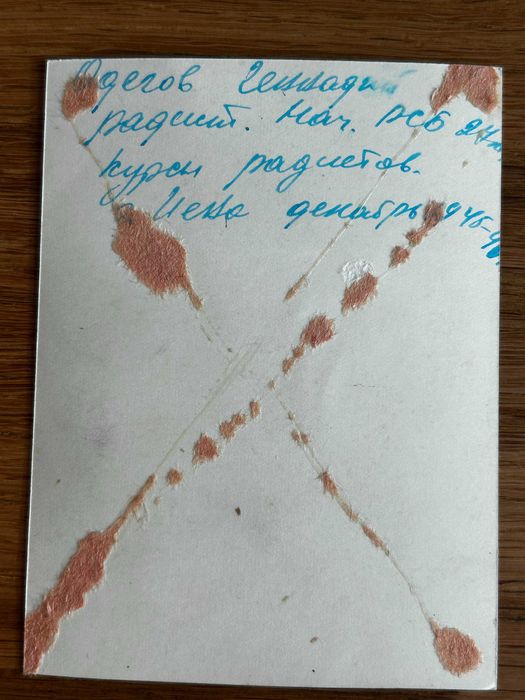 Одегов Геннадий
радист. Нач. РСБ
курсы радистов.
декабрь